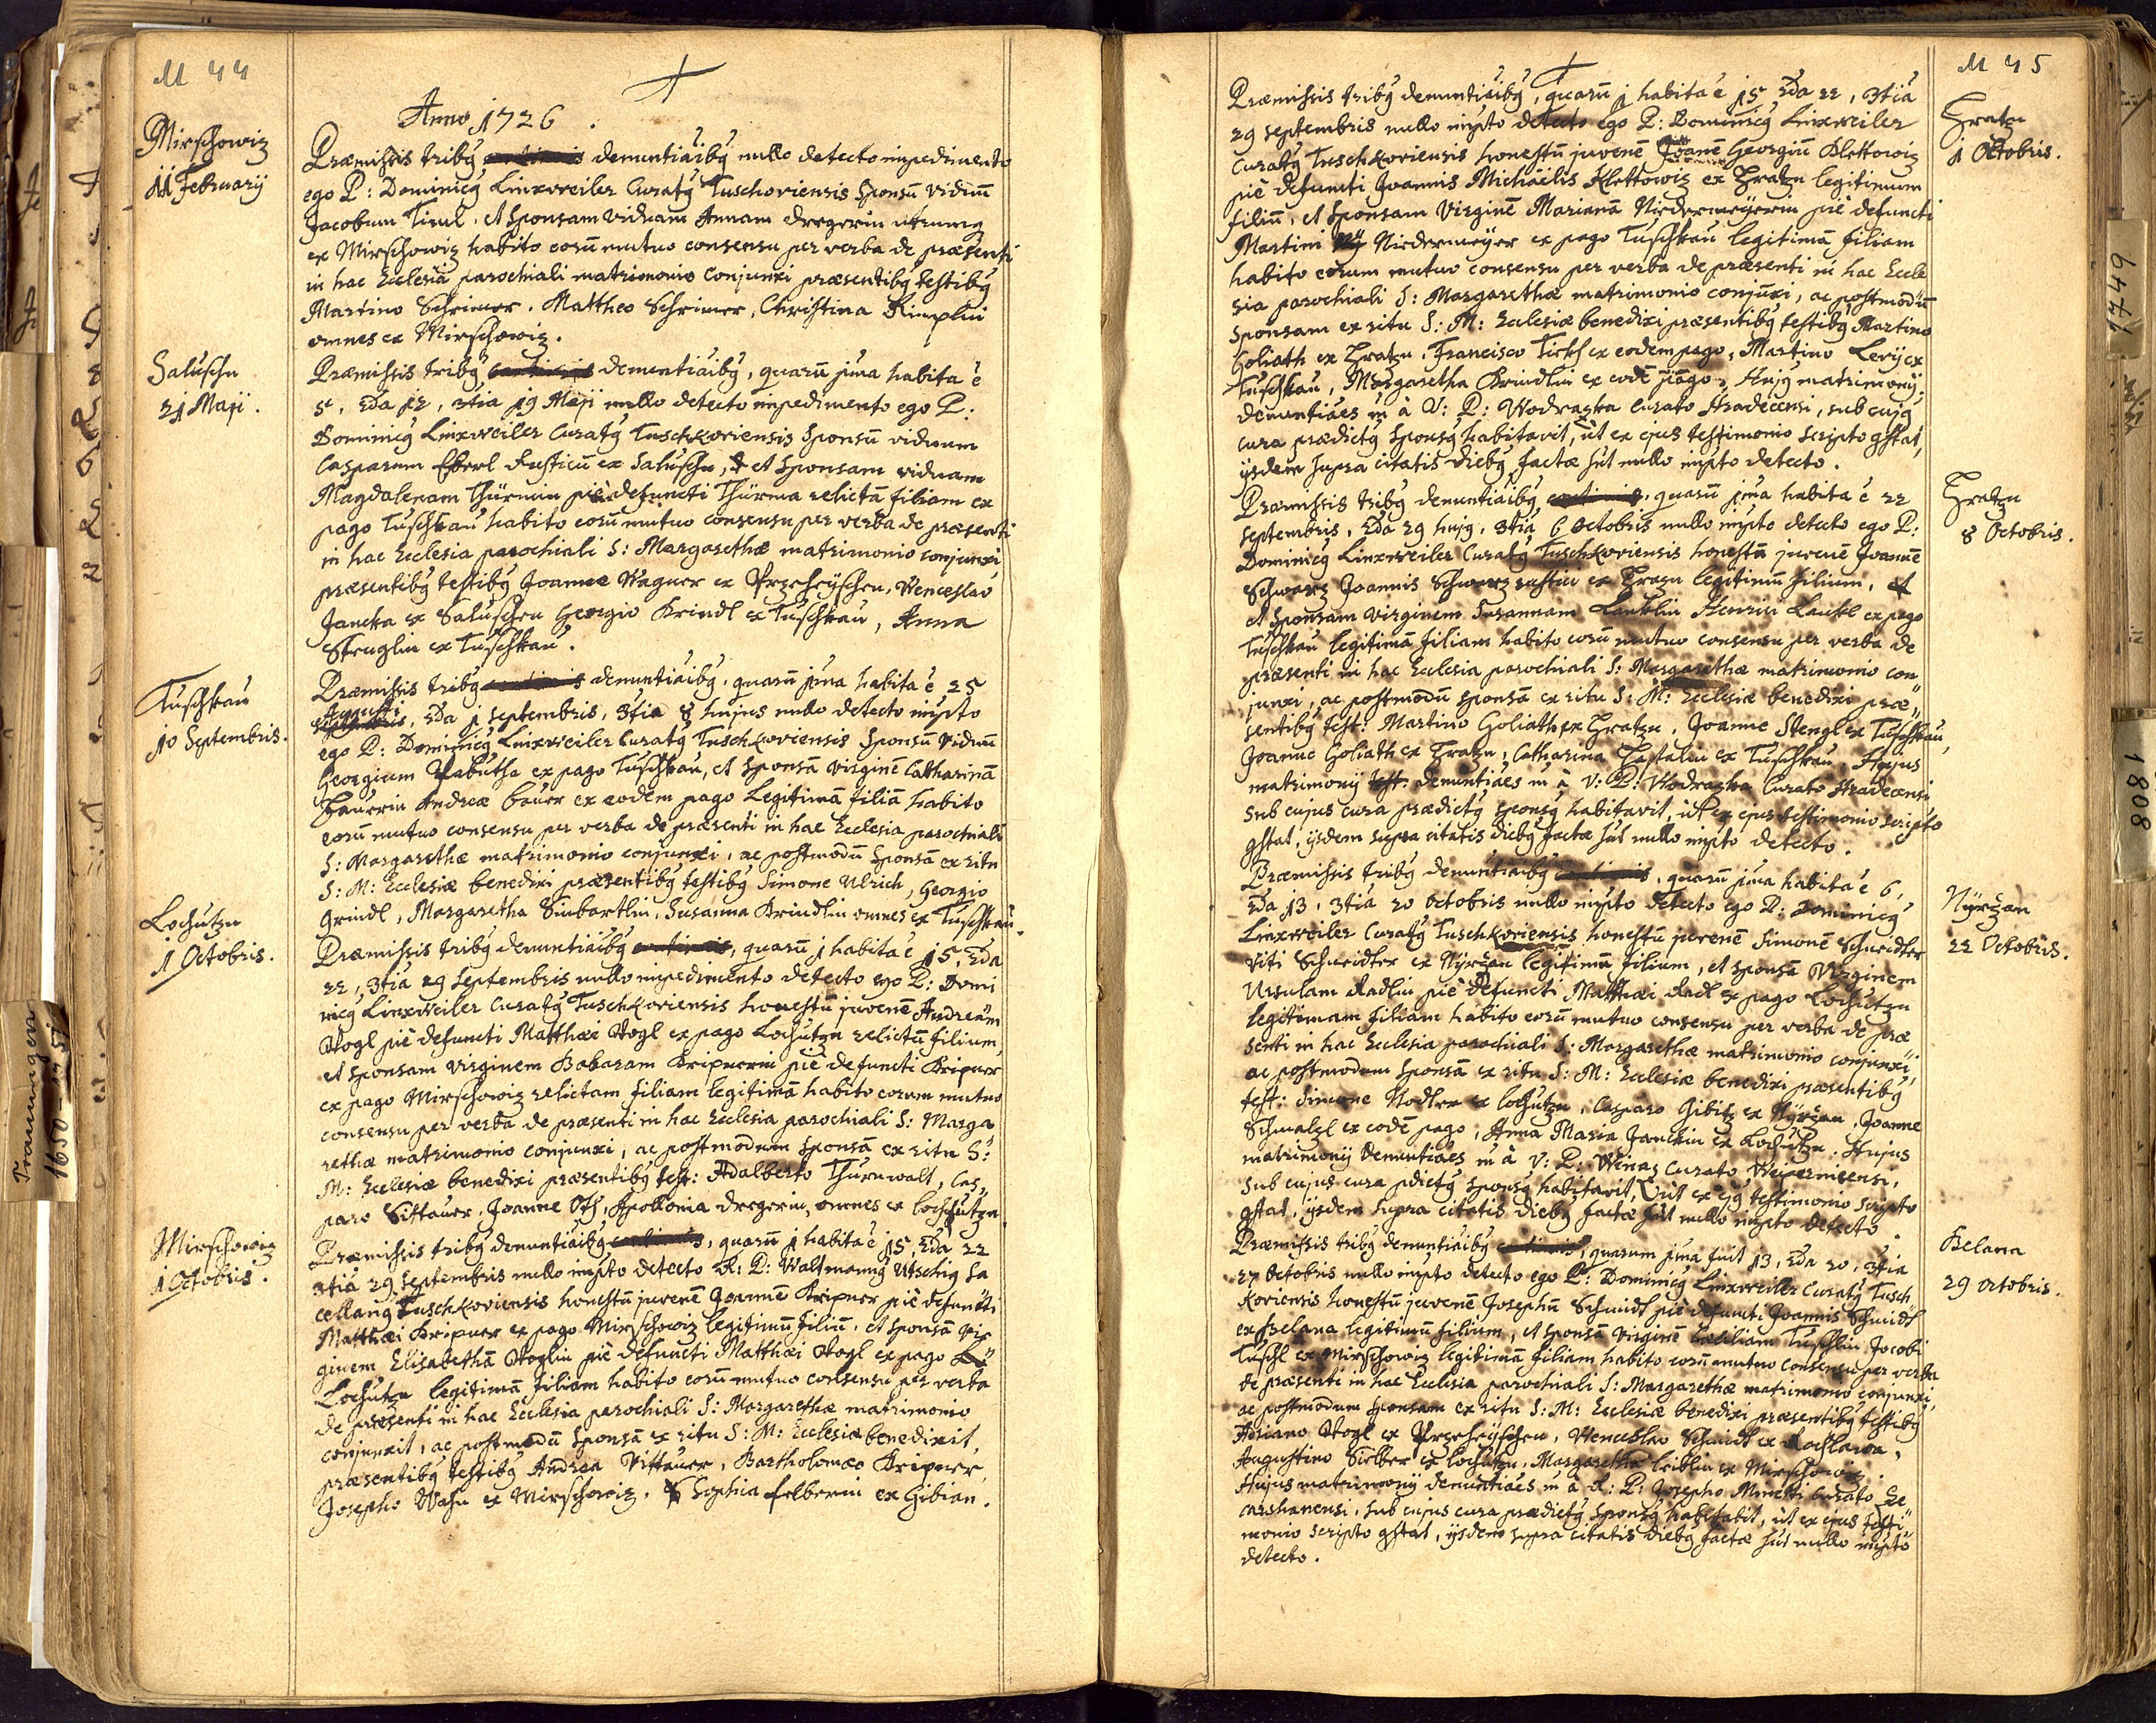 M 44
Anno 1726.
Mirschowiz
11 February
Præmissis tribꝯ denuntiãibꝯ nullo detecto impedimento
ego P: Dominicꝯ Linxweiler Curatꝯ Tuschoviensis Sponsũ viduũ
Jacobum Tirul, et Sponsam viduam Annam Dregerin utrumq
ex Mirschowiz habito eorũ mutuo consensu per verba de præsenti
in hac Ecclesia parochiali matrimonio conjunxi præsentibꝯ testibꝯ
Martino Schrimer, Mattheo Schrimer, Christina Kimplin
omnes ex Mirschowiz.
Saluschn
21 Maji.
Præmissis tribꝯ denuntiãibꝯ, quarũ jma habita ẽ
5ta, 2da 12, 3tia 19 Maji nullo detecto impedimento ego P:
Dominicꝯ Linxweiler Curatꝯ Tuschkoviensis Sponsũ viduum
Casparum Eberl Rusticũ ex Saluschn, et Sponsam viduam
Magdalenam Thürmin piè defuncti Thürma relictã filiam ex
pago Tuschkau habito eorũ mutuo consensu per verba de præsenti
in hac Ecclesia parochiali S: Margarethæ matrimonio conjunxi
præsentibꝯ testibꝯ Joanne Wagner ex Przeheyschen, Wenceslao
Jancka ex Saluschen Georgio Krindl ex Tuschkau, Anna
Struglin ex Tuschkau.
Tuschkau
10 Septembris.
Præmissis tribꝯ denuntiãibꝯ, quarũ jma habita ẽ 25
Augusti, 2da 1 Septembris, 3tia 8 hujus nullo detecto impto
ego P: Dominicꝯ Linxweiler Curatꝯ Tuschkoviensis Sponsũ viduũ
Georgium Pabutha ex pago Tuschkau, et Sponsã virginẽ Catharinã
Bauerin Andreæ Bauer ex eodem pago Legitimã filiã habito
eorũ mutuo consensu per verba de præsenti in hac Ecclesia parochiali
S: Margarethæ matrimonio conjunxi, ac postmodũ Sponsã ex ritu
S: M: Ecclesiæ benedixi præsentibꝯ testibꝯ Simone Ulrich, Georgio
Grindl, Margaretha Sinbartlin, Susanna Krindlin omnes ex Tuschkau.
Lochutzn
1 Octobris.
Præmissis tribꝯ denuntiãibꝯ, quarũ j habita ẽ 15, 2da
22, 3tia 29 Septembris nullo impedimento detecto ego P: Domi
nicꝯ Linxweiler Curatꝯ Tuschkoviensis honestũ juvenẽ Andream
Vogl piè defuncti Matthæi Vogl ex pago Lochutzn relictũ filium,
et Sponsam virginem Babaram Kripnerin piè defuncti Kripner
ex pago Mirschowiz relictam filiam legitimã habito eorum mutuo
consensu per verba de præsenti in hac Ecclesia parochiali S: Marga
rethæ matrimonio conjunxi, ac postmodum sponsã ex ritu S:
M: Ecclesiæ benedixi præsentibꝯ test: Adalberto Thurnwalt, Cas
paro Sittauer, Joanne Oth, Apollonia Dregerin, omnes ex Lochutzn
Mirschowiz
1 Octobris.
Præmissis tribꝯ denuntiãibꝯ, quarũ j habita ẽ 15, 2da 22
3tia 29 Septembris nullo impto detecto R: P: Waltmannꝯ Utschig Sa
cellanꝯ Tuschkoviensis honestũ juvenẽ Joannẽ Kripner piè defuncti
Matthæi Kripner ex pago Mirschowiz legitimũ filiũ, et Sponsã vir
ginem Elisabethã Voglin piè defuncti Matthæi Vogl ex pago
Lochutzn legitimã filiam habito eorũ mutuo consensu per verba
de præsenti in hac Ecclesia parochiali S: Margarethæ matrimonio
conjunxit, ac postmodũ Sponsã ex ritu S: M: Ecclesiæ benedixit,
præsentibꝯ testibꝯ Andrea Vittauer, Bartholomæo Kripner,
Josepho Wahn ex Mirschowiz, Sophia Felberin ex Gibian.
M 45
Hratzn
1 Octobris.
Præmissis tribꝯ denuntiãibꝯ, quarũ j habita ẽ 15 2da 22, 3tia
29 Septembris nullo impto detecto ego P: Dominicꝯ Linxweiler
Curatꝯ Tuschkoviensis honestũ juvenẽ Joanẽ Georgiũ Klettowiz
piè defuncti Joannis Michaëlis Klettowiz ex Hratzn legitimum
filiũ, et Sponsam Virginẽ Marianã Niedermeyerin piè defuncti
Martini Niedermeyer ex pago Tuschkau legitimã filiam
habito eorum mutuo consensu per verba de præsenti in hac Eccle
sia parochiali S: Margarethæ matrimonio conjũxi, ac postmodũ
Sponsam ex ritu S: M: Ecclesiæ benedixi præsentibꝯ testibꝯ Martino
Goliath ex Hratzn, Francisco Tirkl ex eodem pago, Martino Lerij ex
Tuschkau, Margaretha Krindlin ex eodẽ pago, Hujꝯ matrimonij
denuntiães in à V: P: Wodrazka Curato Hradecensi, sub cujꝯ
cura prædictꝯ sponsꝯ habitavit, ùt ex ejus testimonio scripto gstat,
ijsdem supra citatis diebꝯ factæ sũt nullo impto detecto.
Hratzn
8 Octobris.
Præmissis tribꝯ denuntiãibꝯ, quarũ jma habita ẽ 22
Septembris, 2da 29 hujꝯ, 3tia 6 Octobris nullo impto detecto ego P:
Dominicꝯ Linxweiler Curatꝯ Tuschkoviensis honestũ juvenẽ Joannẽ
Schwarz Joannis Schwarz rustici ex Hratzn legitimũ filium, et
et Sponsam virginem Susannam Lanklin Henrici Lankl ex pago
Tuschkau legitimã filiam habito eorũ mutuo consensu per verba de
præsenti in hac Ecclesia parochiali S: Margarethæ matrimonio con
junxi, ac postmodũ sponsã ex ritu S: M: Ecclesiæ benedixi præ
sentibꝯ test: Martino Goliath ex Hratzn, Joanne Stengl ex Tuschkau,
Joanne Goliath ex Hratzn, Catharina Hastalin ex Tuschkau. Hujus
matrimonij denuntiães in à V: P: Wodrazka Curato Hradecensi
sub cujus cura prædictꝯ sponsꝯ habitavit, ùt ex ejus testimonio scripto
gstat, ijsdem supra citatis diebꝯ factæ sũt nullo impto detecto.
Nÿržan
22 Octobris.
Præmissis tribꝯ denuntiãibꝯ, quarũ jma habita ẽ 6,
2da 13, 3tia 20 Octobris nullo impto detecto ego P: Dominicꝯ
Linxweiler Curatꝯ Tuschkoviensis honestũ juvenẽ Simonẽ Schneidler
Viti Schneidler ex Nÿržan legitimũ filium, et Sponsã Virginem
Ursulam Radlin piè defuncti Matthæi Radl ex pago Lochutzn
legitimam filiam habito eorũ mutuo consensu per verba de præ
senti in hac Ecclesia parochiali S: Margarethæ matrimonio conjunxi,
ac postmodum Sponsã ex ritu S: M: Ecclesiæ benedixi præsentibꝯ
test: Simone Nodler ex Lochutzn, Casparo Gibitz ex Nÿržan, Joanne
Schmalzl ex eodẽ pago, Anna Maria Janckin ex Lochutzn. Hujus
matrimonij denuntiães in à V: P: Weinaz Curato Weicernicensi,
sub cujus cura pdictꝯ sponsꝯ habitavit, ùt ex ejꝯ testimonio scripto
gstat, ijsdem supra citatis diebꝯ factæ sũt nullo impto detecto.
Belana
29 Octobris.
Præmissis tribꝯ denuntiãibꝯ, quarum jma fuit 13, 2da 20, 3tia
27 Octobris nullo impto detecto ego P: Dominicꝯ Linxweiler Curatꝯ Tusch
koviensis honestũ juvenẽ Josephũ Schmidl piè defuncti Joannis Schmidl
ex Belana legitimũ filium, et Sponsã virginẽ Cæciliam Tuschlin Jacobi
Tuschl ex Mirschowiz legitimã filiam habito eorũ mutuo consensu per verba
de præsenti in hac Ecclesia parochiali S: Margarethæ matrimonio conjunxi,
ac postmodum sponsam ex ritu S: M: Ecclesiæ benedixi præsentibꝯ testibꝯ
Adriano Vogl ex Przeheyschen, Wenceslao Schmidl ex Rochlawa,
Augustino Sielber ex Lochutzn, Margaretha Leiblin ex Mirschowiz.
Hujus matrimonij denuntiães in à R: P: Josepho Minetti Curato Ze
carshanensi, sub cujus cura prædictꝯ sponsꝯ habitabit, ùt ex ejus testi
monio scripto gstat, ijsdem supra citatis diebꝯ factæ sũt nullo impto
detecto.
Trauungen
1650
1749
1808